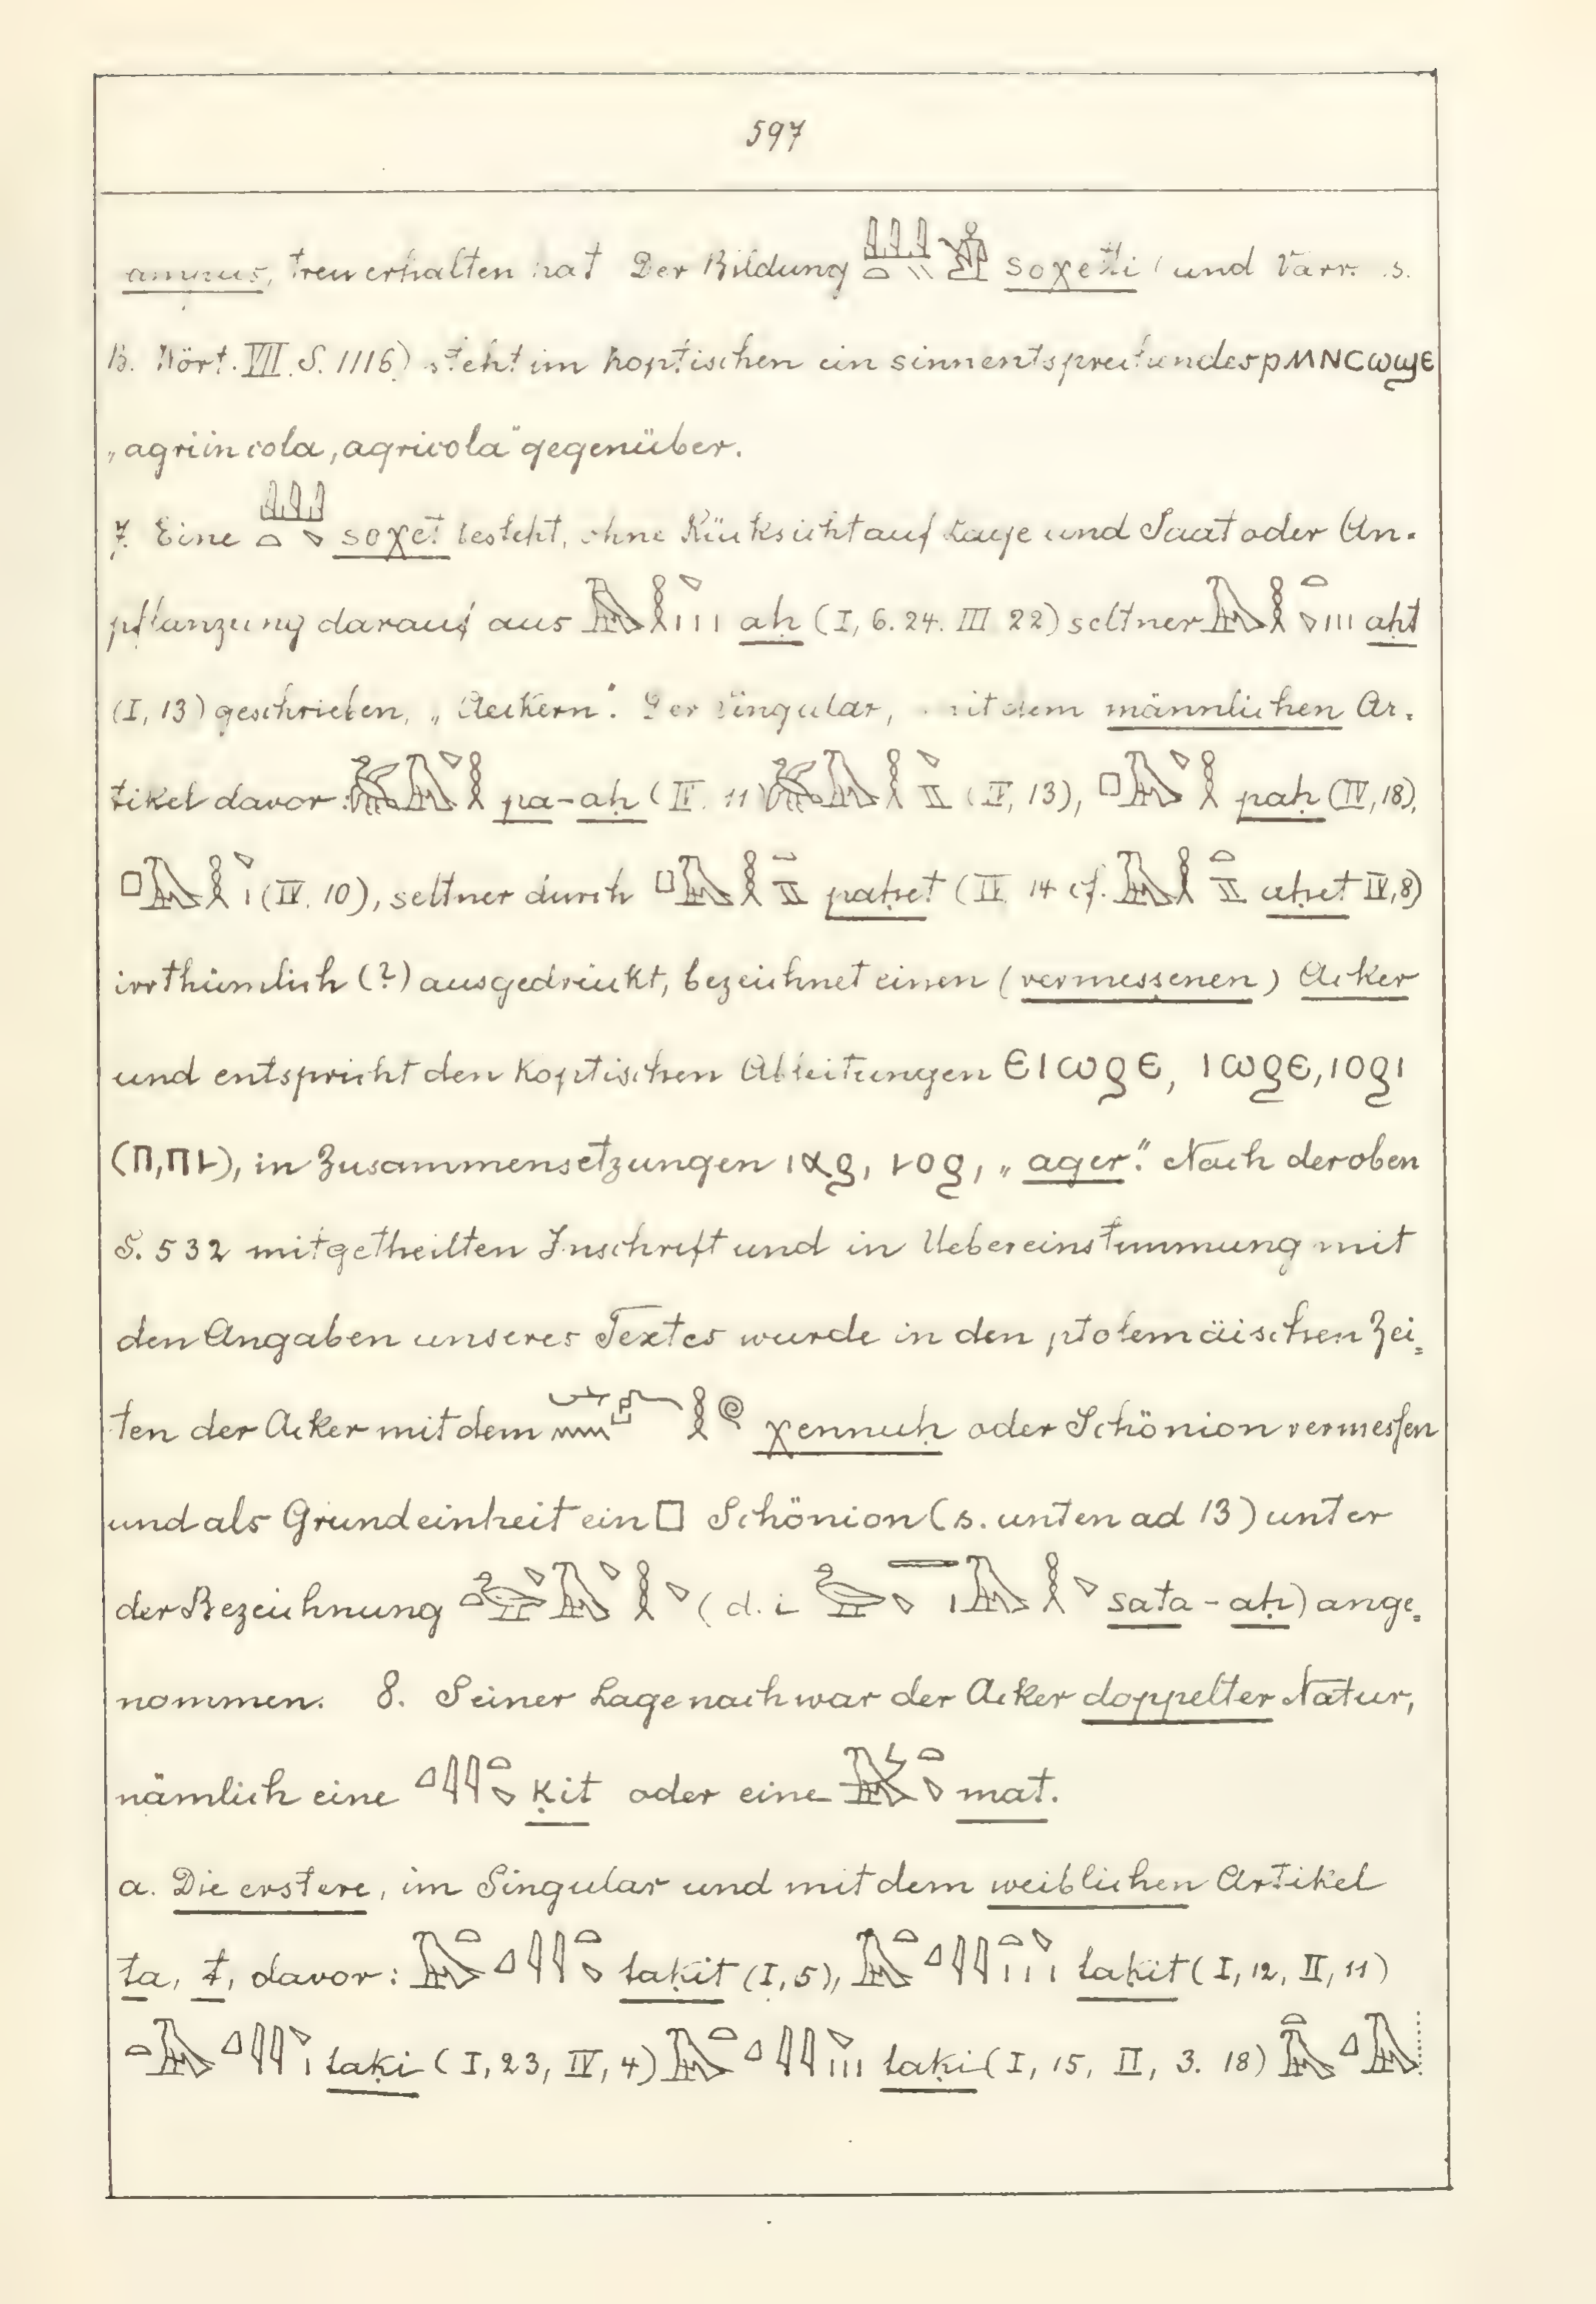 597
treu erhalten hat Der Bildung 𓇏𓏏𓏭 soχeti (und Varr. s.
B. Wört. VII. S. 1116) steht im Koptischen ein sinnentsprechendes ⲣⲙⲛⲥⲱϣⲉ
„agri incola, agricola" gegenüber.
7. Eine 𓇏𓏏 soχet besteht, ohne Rücksicht auf Lage und Saat oder An-
pflanzung darauf aus 𓄿𓎛𓏥 aḥ (I, 6. 24. III 22) seltner 𓄿𓎛𓏏𓏥 aḥt
(I, 13) geschrieben, „Aeckern". Der Singular, mit dem männlichen Ar-
tikel davor: 𓅯𓄿𓎛 pa-aḥ (II. 11) 𓅯𓄿𓎛𓈅 (II, 13), 𓊪𓄿𓎛 paḥ (IV, 18),
𓊪𓄿𓎛𓏤 (IV. 10), seltner durch 𓊪𓄿𓎛𓏏𓈅 paḥet (II 14 cf. 𓄿𓎛𓏏𓈅 aḥet IV, 8)
irrthümlich (?) ausgedrückt, bezeichnet einen (vermessenen) Acker
und entspricht den Koptischen Ableitungen ⲉⲓⲱϩⲉ, ⲓⲱϩⲉ, ⲓⲟϩⲓ
(ⲡ, ⲡⲓ), in Zusammensetzungen ⲓⲁϩ, ⲓⲟϩ, „ager". Nach der oben
S. 532 mitgetheilten Inschrift und in Uebereinstimmung mit
den Angaben unseres Textes wurde in den ptolemäischen Zei=
ten der Acker mit dem 𓎛𓍢 χennuḥ oder Schönion vermessen
und als Grundeinheit ein □ Schönion (s. unten ad 13) unter
der Bezeichnung 𓅭𓏏𓄿𓎛 (d. i 𓅭𓇾𓏤𓄿𓎛 sata-aḥ) ange=
nommen. 8. Seiner Lage nach war der Acker doppelter Natur,
nämlich eine 𓈎𓇋𓇋𓏏 ḳit oder eine 𓏏 mat.
a. Die erstere, im Singular und mit dem weiblichen Artikel
ta, t, davor: 𓏏𓄿𓈎𓇋𓇋𓏏 taḳit (I, 5), 𓏏𓄿𓈎𓇋𓇋𓏏𓏥 taḳit (I, 12, II, 11)
𓏏𓄿𓈎𓇋𓇋𓏤 taḳi (I, 23, IV, 4) 𓏏𓄿𓈎𓇋𓇋𓏥 taḳi (I, 15, II, 3. 18) 𓏏𓄿𓈎𓄿